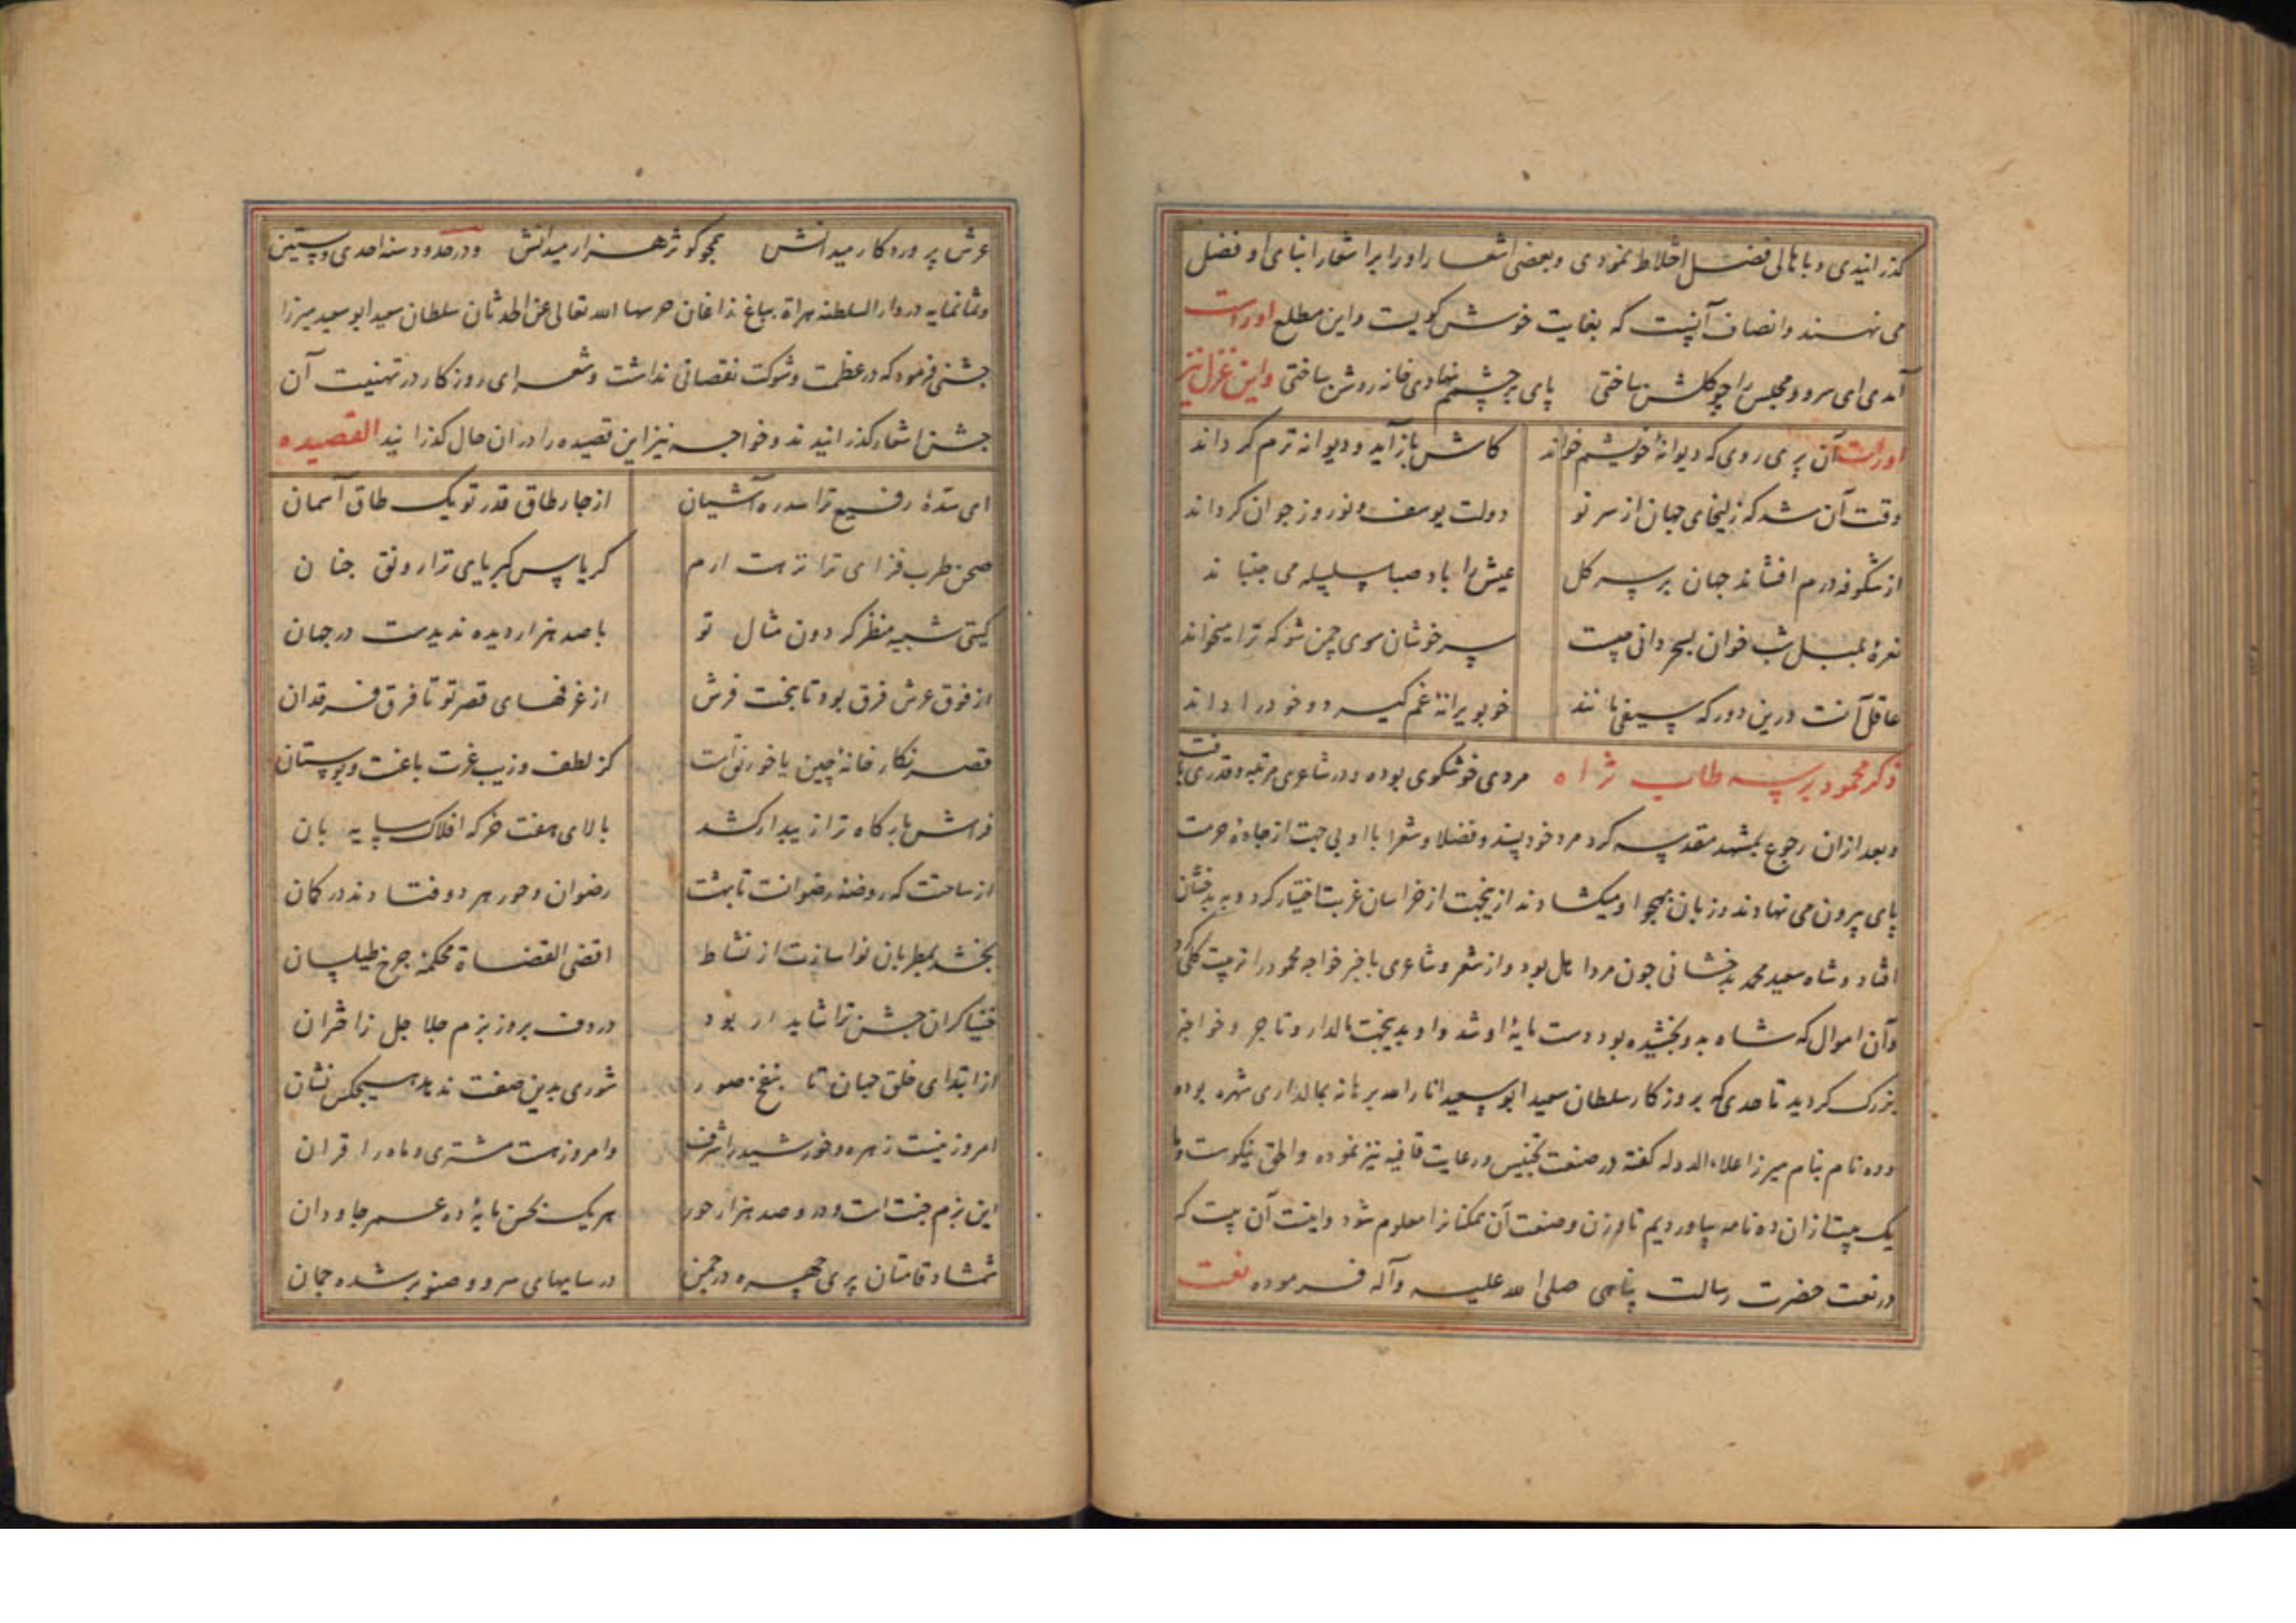 گذرانیدی و با اهالی فضل اختلاط نمودی و بعضی اشعار او را بر اشعار ابنای او فضل
می نهند و انصاف آنست که بغایت خوش گویست و این مطلع اوراست
آمدی ای سرو و مجلس را چو گلشن ساختی پای بر چشمم نهادی خانه روشن ساختی و این غزل نیز
اوراست آن پری روی که دیوانهٔ خویشم خواند کاش بازآید و دیوانه ترم گرداند
وقت آن شد که زلیخای جهان از سر نو دولت یوسف نوروز جوان گرداند
از شکوفه درم افشاند جهان بر سر گل عیش را باد صبا سلسله می جنباند
نعرهٔ بلبل شب خوان بسحر دانی چیست سرخوشان سوی چمن شو که ترا میخواند
عاقل آنست درین دور که سیفی مانند خو بویرانهٔ غم گیرد و خود را داند
ذکر محمود برسه طاب ثراه مردی خوشگوی بوده و در شاعری مرتبه و قدری یافت
و بعد ازان رجوع بمشهد مقدسه کرد مرد خودپسند و فضلا و شعرا با او بی جهت از جادهٔ حرمت
پای بیرون می نهادند و زبان بهجو او میکشادند ازینجهت از خراسان غربت اختیار کرد و به بدخشان
افتاد و شاه سعید محمد بدخشانی چون مرد اهل بود و از شعر و شاعری باخبر خواجه محمود را تربیت کلی کرد
و آن اموال که شاه بدو بخشیده بود دست مایهٔ او شد و او بدینجهت مالدار و تاجر و خواجهٔ
بزرگ گردید تا حدی که بروزگار سلطان سعید ابوسعید انار الله برهانه بمالداری شهره بوده
و ده نام بنام میرزا علاء الدوله گفته در صنعت تجنیس و رعایت قافیه نیز نموده و الحق نیکوست و ما
یک بیت ازان ده نامه بیاوردیم تا وزن و صنعت آن همگنانرا معلوم شود و اینست آن بیت که
در نعت حضرت رسالت پناهی صلی الله علیه و آله فرموده نعت
عرش پروردکار میدانش همچو کوثر هزار میدانش و در حدود سنه احدی و ستین
و ثمانمایه در دار السلطنه هراة بباغ زاغان حرسها الله تعالی عن الحدثان سلطان سعید ابوسعید میرزا
جشنی فرمود که در عظمت و شوکت نقصانی نداشت و شعرای روزکار در تهنیت آن
جشن اشعار گذرانیدند و خواجه نیز این قصیده را دران حال گذرانید القصیده
ای سدهٔ رفیع ترا سدره آشیان از چار طاق قدر تو یک طاق آسمان
صحن طرب فزای ترا نزهت ارم کریاس کبریای ترا رونق جنان
گیتی شبیه منظر گردون مثال تو با صد هزار دیده ندیدست در جهان
از فوق عرش فرق بود تا بتحت فرش از غرفهای قصر تو تا فرق فرقدان
قصر نگار خانهٔ چین یا خورنق است کز لطف و زیب غیرت باغست و بوستان
فراش بارگاه ترا زیبد ار کشد بالای هفت خرگه افلاک سایه بان
از ساحتت که روضهٔ رضوانست تا بهشت رضوان و حور هر دو فتادند در گمان
بخشد بمطربان نواسازت از نشاط اقضی القضاة محکمهٔ چرخ طیلسان
خنیاگران جشن ترا شاید ار بود در دف بروز بزم جلاجل ز اختران
از ابتدای خلق جهان تا بنفخ صور شوری بدین صفت ندهد هیچکس نشان
امروز نیست زهره و خورشید را شرف وامروز هست مشتری و ماه را قران
این بزم جنت است و درو صد هزار حور هر یک بحسن مایهٔ ده عمر جاودان
شمشاد قامتان پری چهره در چمن در سایهای سرو و صنوبر شده چمان